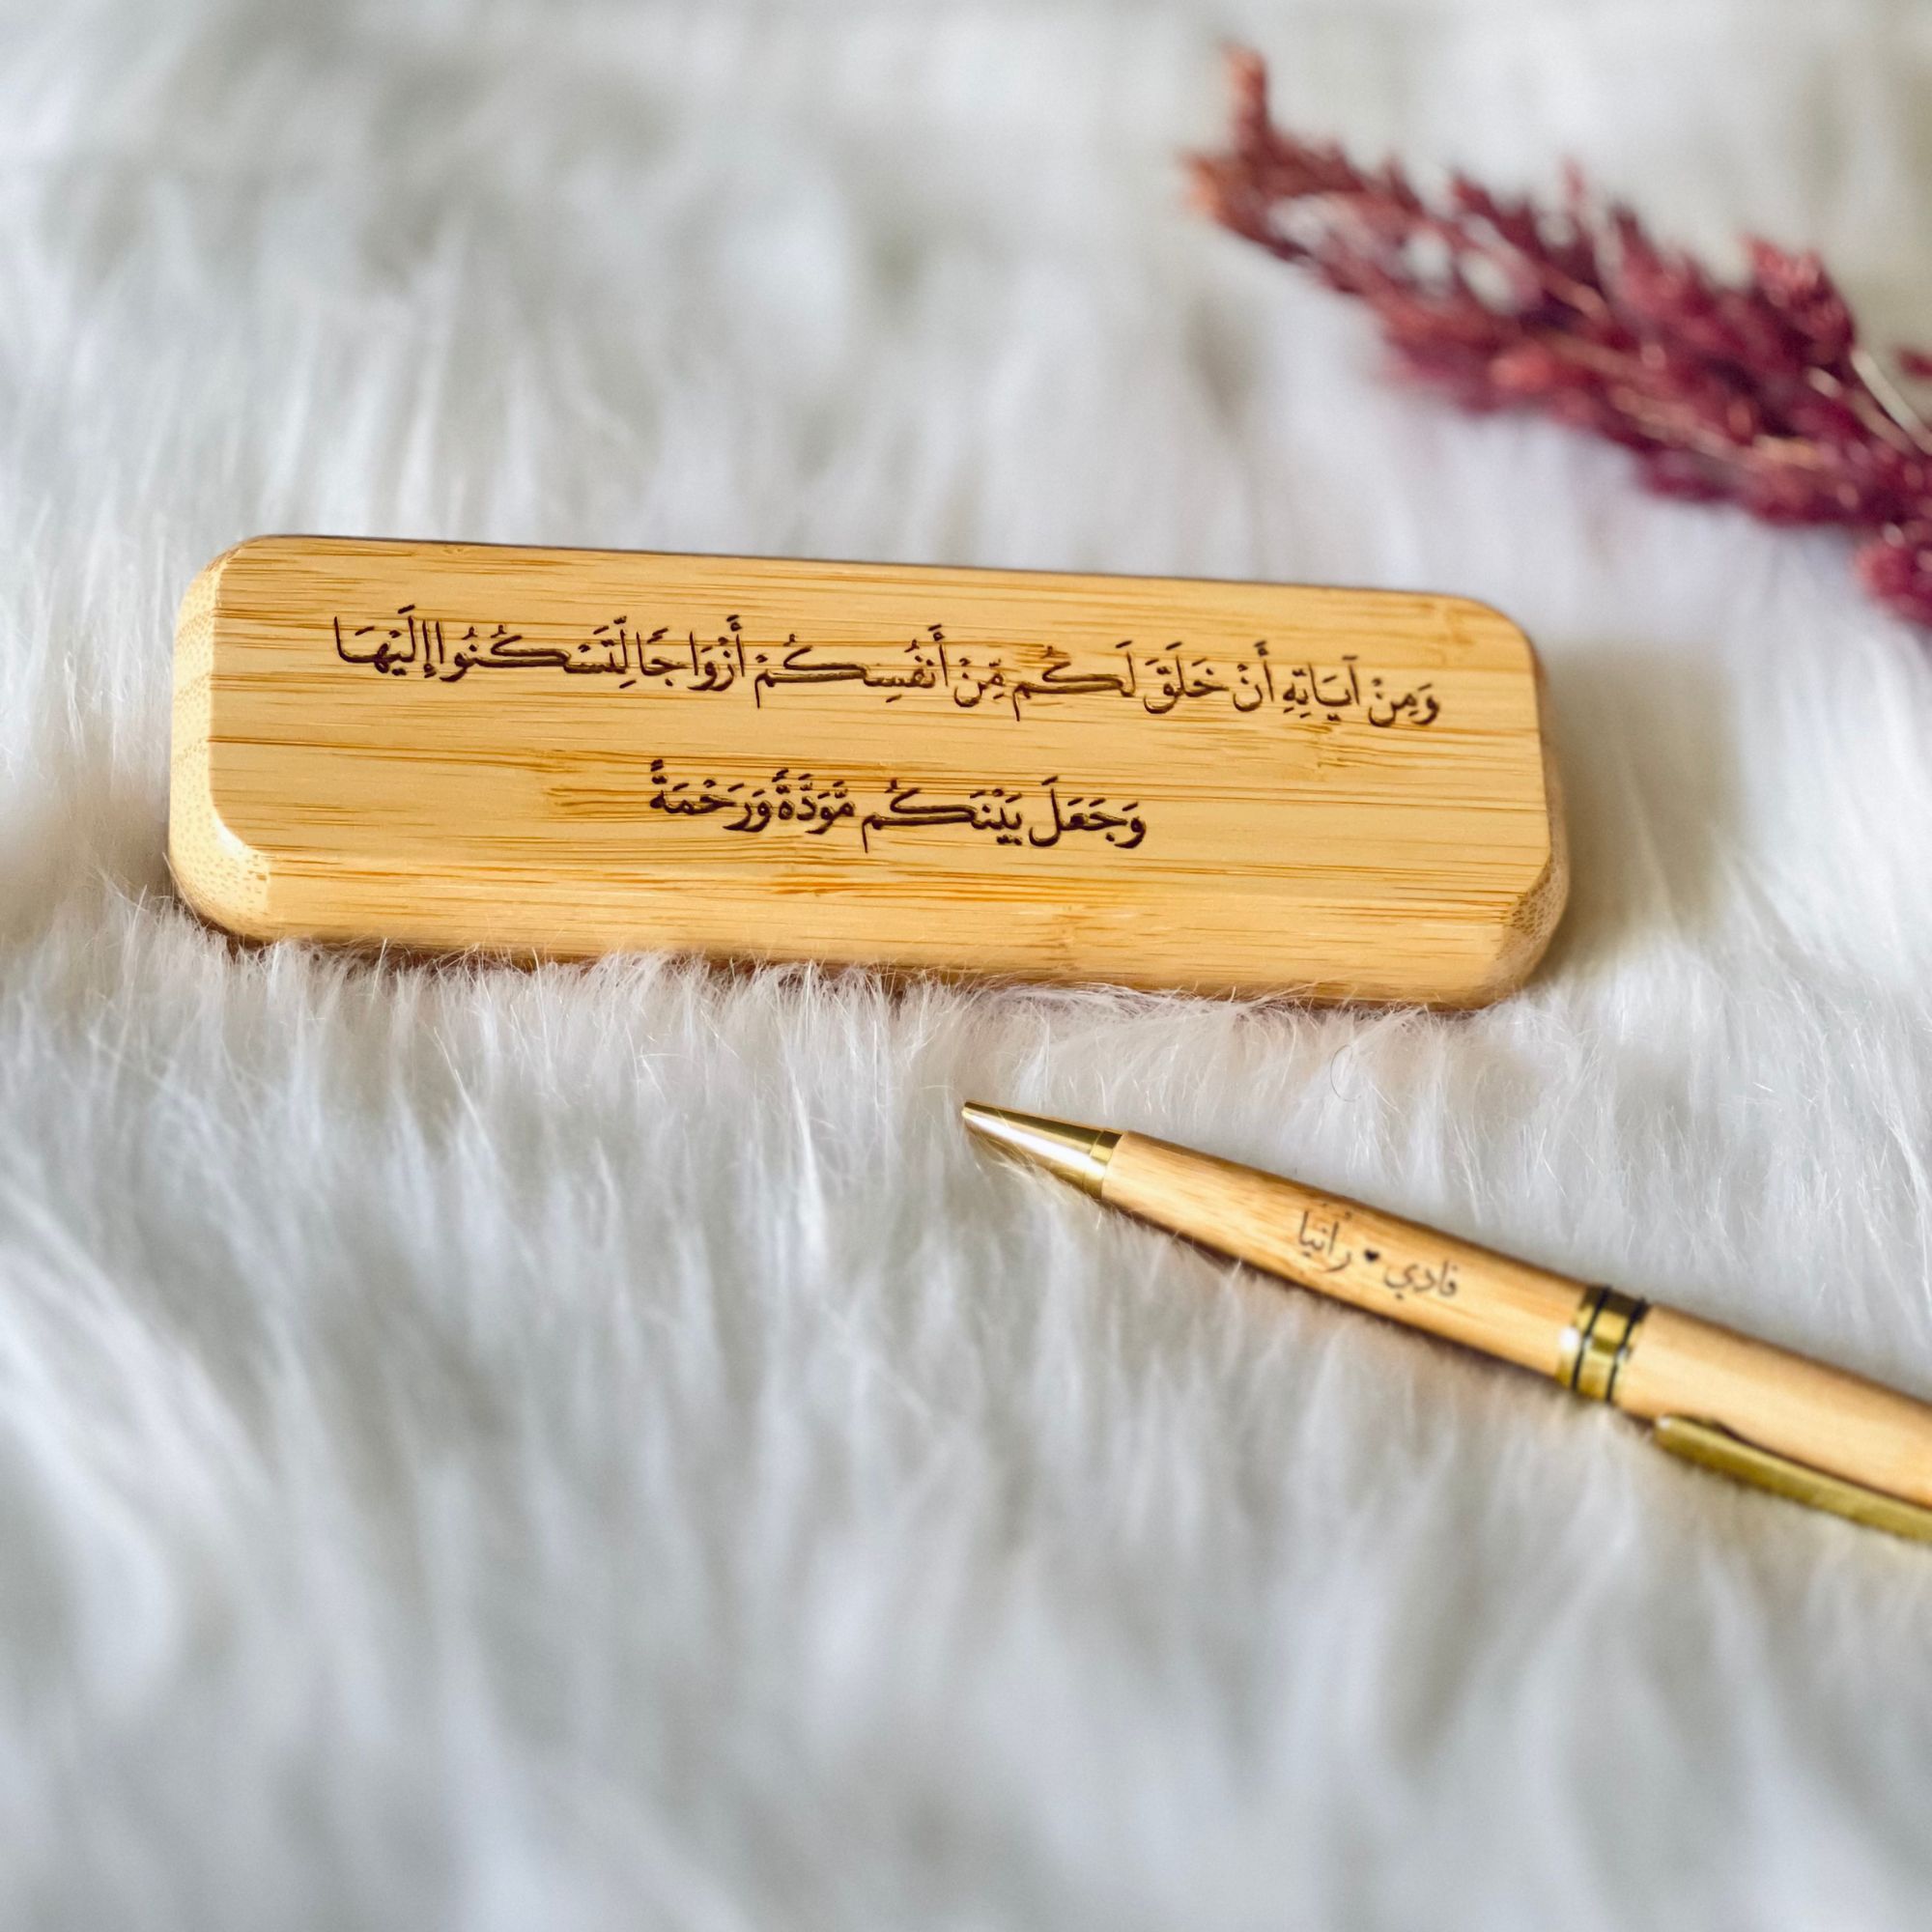 وَمِنْ آيَاتِهِ أَنْ خَلَقَ لَكُم مِّنْ أَنفُسِكُمْ أَزْوَاجًا لِّتَسْكُنُوا إِلَيْهَا
وَجَعَلَ بَيْنَكُم مَّوَدَّةً وَرَحْمَةً
فادي ♥ رانيا